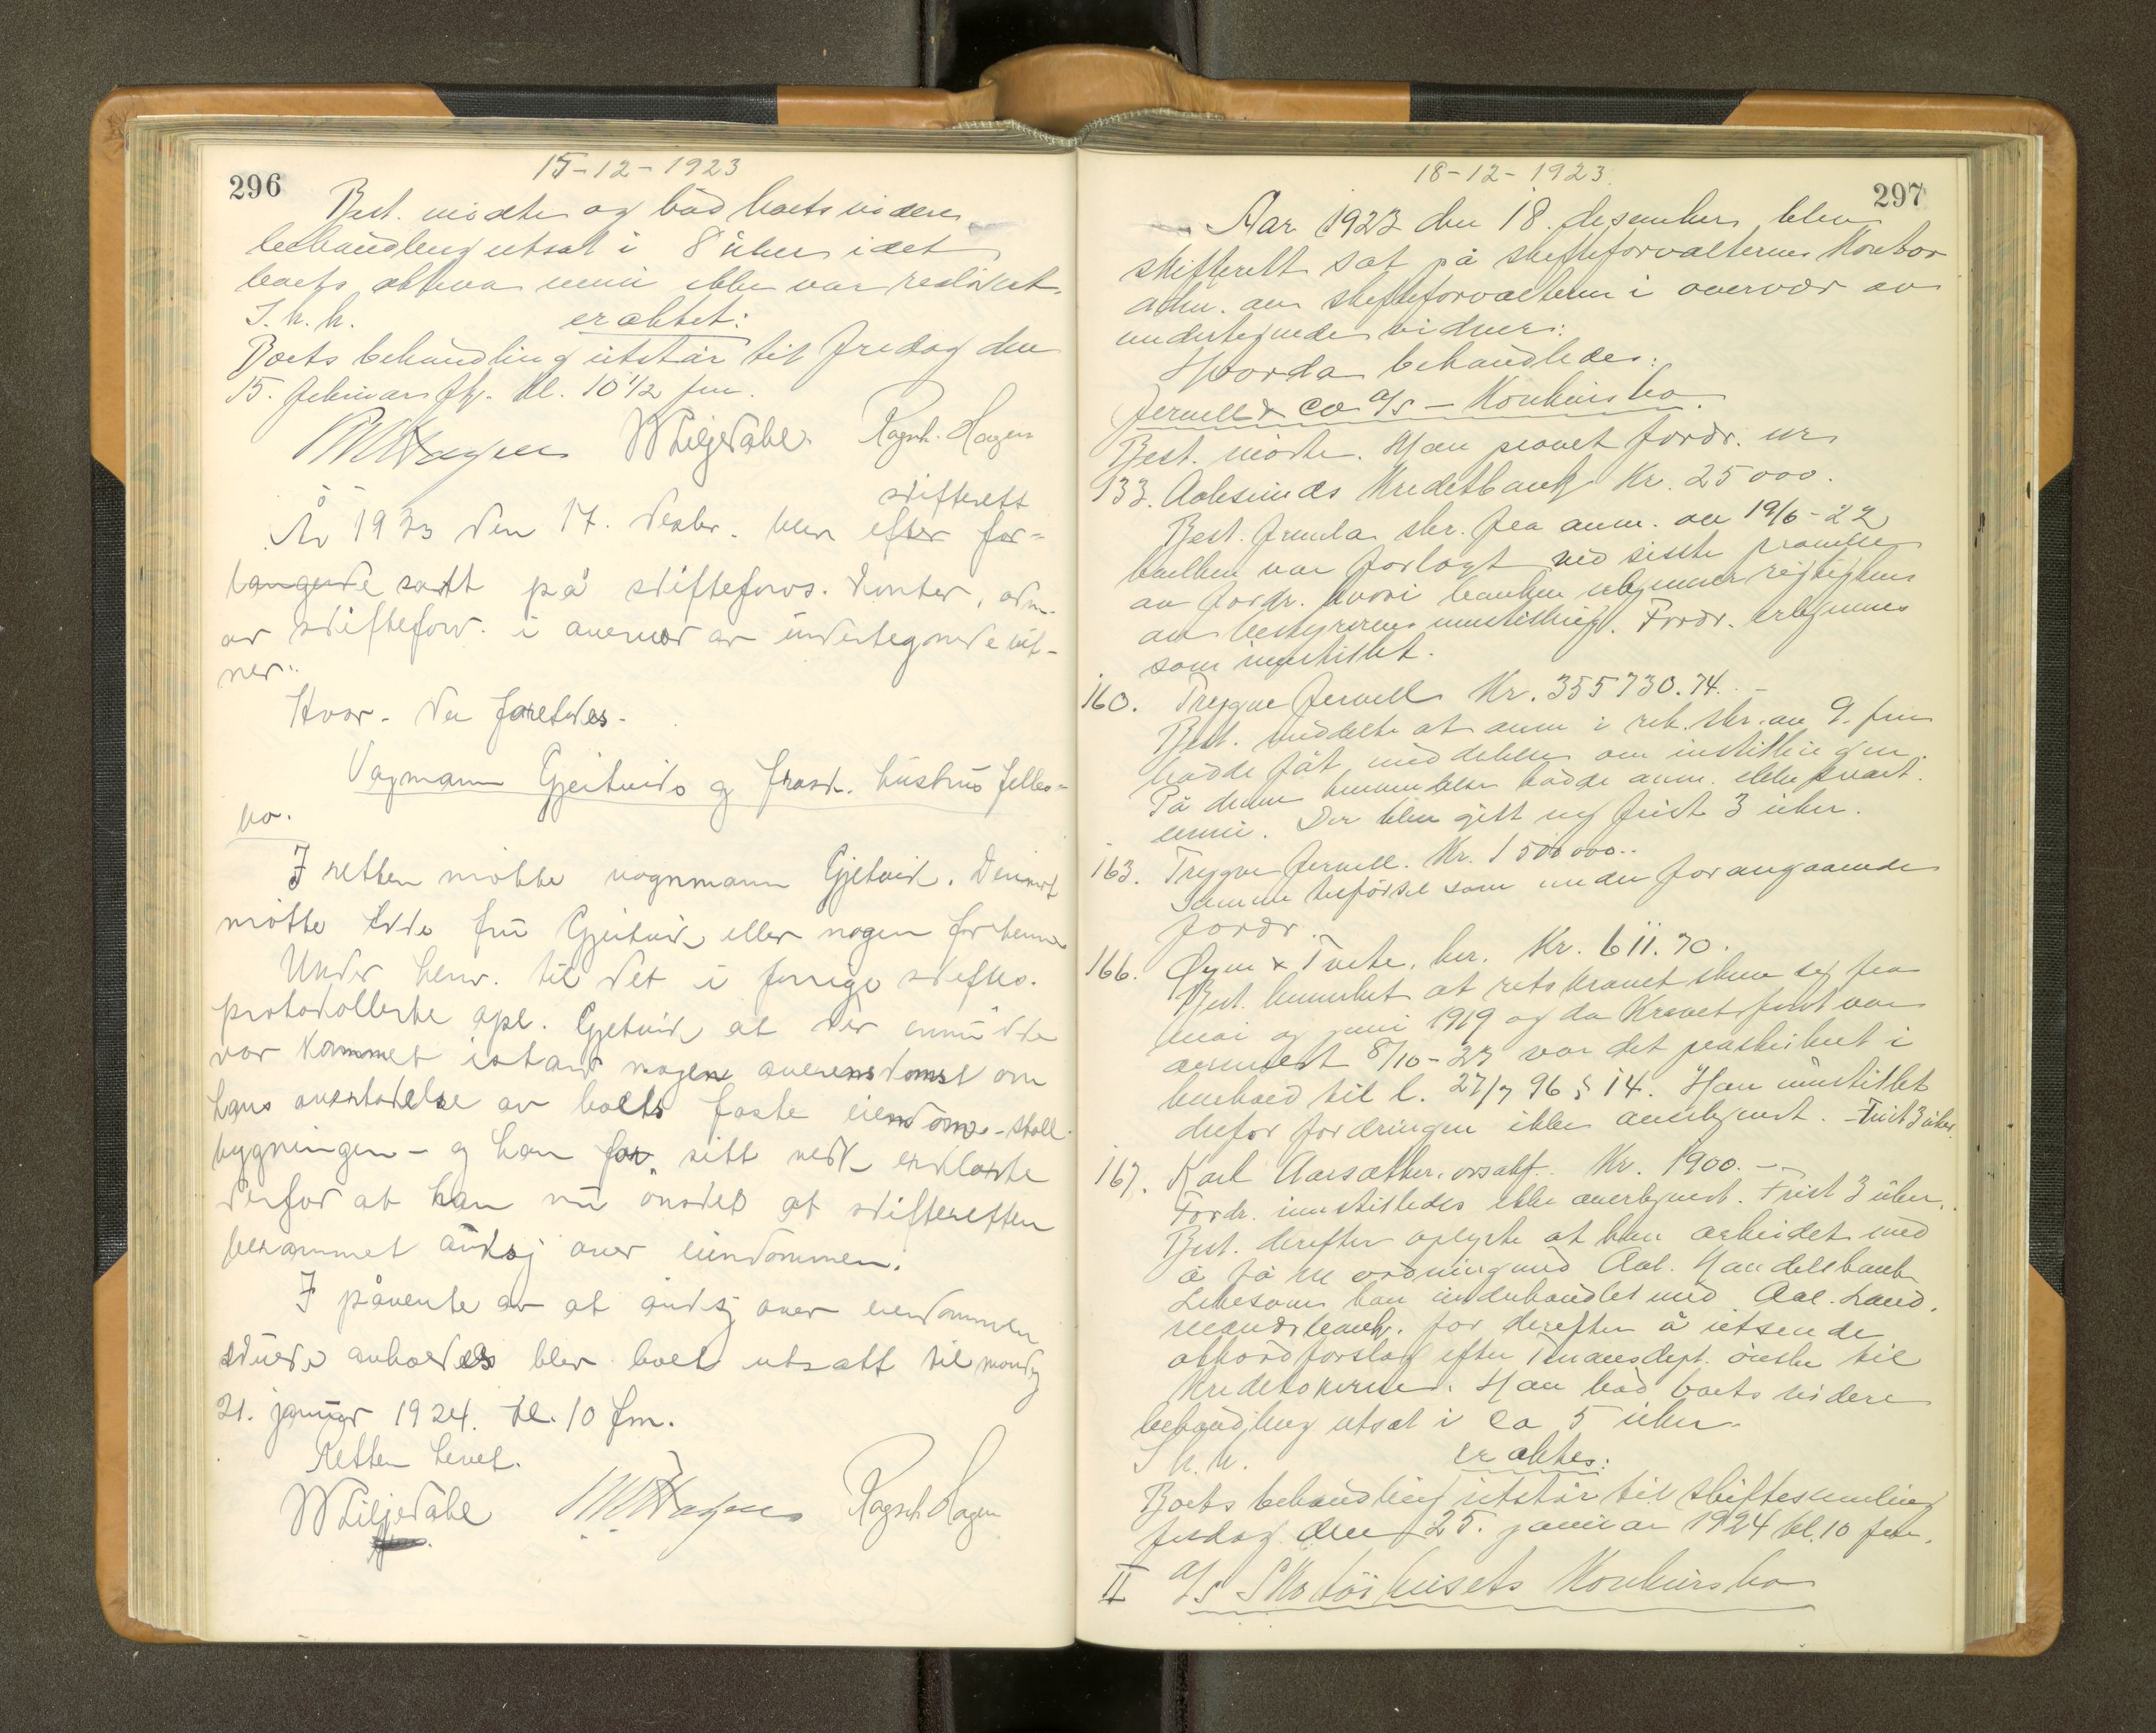 296
15-12-1923
Best. mødte og bad boets videre
behandling utsat i 8 uker idet
boets aktiva ennu ikke var realisert.
I. h. h. eraktet:
Boets behandling utstår til fredag den
15. februar fk. kl. 10 1/2 fm.
W Liljedahl Ragnh. Hagen
skifterett
År 1923 den 17. desbr. blev efter for-
langende satt på skifteforv. kontor, adm.
av skifteforv. i overvær av undertegnede vit-
ner:
Hvor da foretokes.
Vognmann Gjeitviks og frask. hustrus felles-
bo.
I retten møtte vognmann Gjetvik. Derimot
møtte ikke fru Gjeitvik eller nogen for henne
Under henv. til det i forrige skiftes.
protokollerte opl. Gjetvik at der ennu ikke
var kommet istand nogen overenskomst om
hans overtakelse av boets faste eiendom - stall
bygningen - og han for sitt vedk. erklærte
derfor at han nu ønsket at skifteretten
berammet auksj over eiendommen.
I påvente av at auksj over eiendommen
skulde avholdes blev boet utsatt til mandag
21. januar 1924. kl. 10 fm.
Retten hevet.
W Liljedahl Ragnh Hagen
18-12-1923.
297
Aar 1923 den 18. desember blev
skifterett sat på skifteforvalterens kontor
adm. av skifteforvalteren i overvær av
undertegnede vidner:
Hvorda behandledes:
Jervell & Co A/S - Konkursbo.
Best. mødte. Han prøvet fordr. nr
133. Aalesunds Kreditbank Kr. 25 000.
Best. fremla skr. fra anm. av 19/6-22
hvilken var forlagt ved siste prøvelse
av fordr. hvori banken erkjenner rigtigheten
av bestyrerens innstilling. Fordr. erkjennes
som innstillet.
160. Trygve Jervell Kr. 355730.74. -
Best. meddelte at anm i rek. skr. av 9. fm
hadde fåt meddelelse om instillingen.
På denne henvendelse hadde anm. ikke svart
ennu. Der blev gitt ny frist 3 uker.
163. Trygve Jervell. Kr. 1 500 000..
Samme tilførsel som under forangaaende
fordr.
166. Øyen & Tvete, her. Kr. 611.70.
Best. bemerket at retskravet skrev sig fra
mai og juni 1919 og da kravet først var
anmeldt 8/10-23 var det preskribert i
henhold til l. 27/7 96 § 14. Han innstillet
derfor fordringen ikke anerkjent. - Frist 3 uker.
167. Karl Aarsæther, orsakf. Kr. 1900. -
Fordr. innstilledes ikke anerkjent. Frist 3 uker.
Best. derefter oplyste at han arbeidet med
å få en ordning med Aal. Handelsbank
Likesom han underhandlet med Aal. Land-
mandsbank. for derefter å utsende
akkordforslag efter Finansdept. ønske til
kreditorerne. Han bad boets videre
behandling utsat i ca 5 uker.
I h. h. eraktes:
Boets behandling utstår til skiftesamling
fredag den 25. januar 1924 kl. 10 fm.
II A/S Skotøihusets Konkursbo